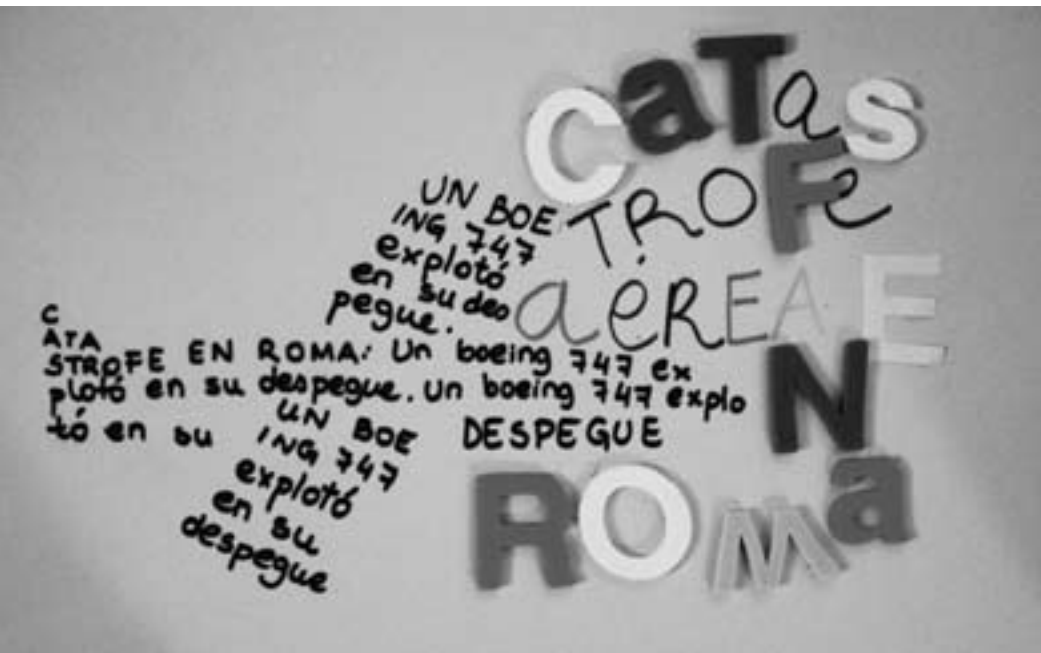 CaTas
TROFe
aéREA E
N
ROMa
UN BOE
ING 747
explotó
en su des
pegue.
C
ATA
STROFE EN ROMA: Un boeing 747 ex
plotó en su despegue. Un boeing 747 explo
tó en su DESPEGUE
UN BOE
ING 747
explotó
en su
despegue